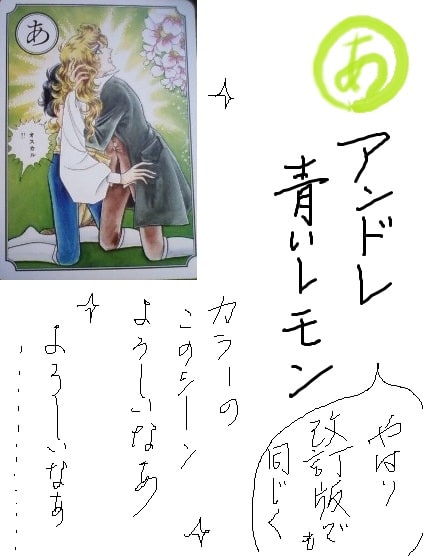 あ
アンドレ
青いレモン
やはり
改訂版でも
同じく
あ
オスカル
!!
カラーの
このシーン
よろしいなあ
よろしいなあ